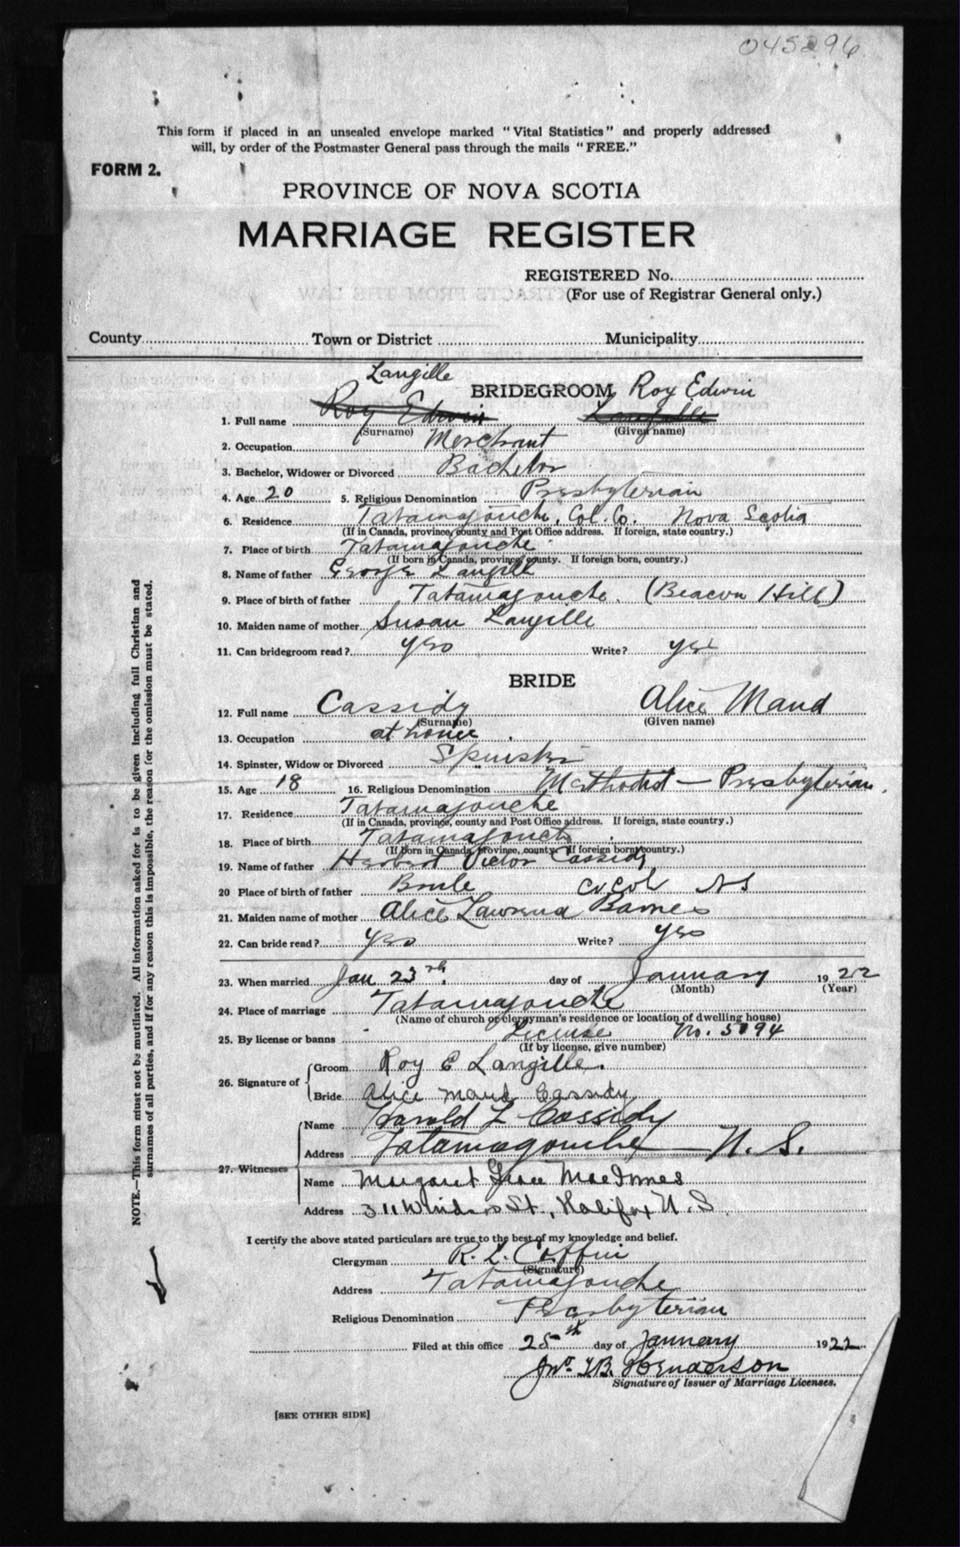 045296
This form if placed in an unsealed envelope marked "Vital Statistics" and properly addressed
will, by order of the Postmaster General pass through the mails "FREE."
FORM 2.
PROVINCE OF NOVA SCOTIA
MARRIAGE REGISTER
REGISTERED No.
(For use of Registrar General only.)
County Town or District Municipality
Langille BRIDEGROOM Roy Edwin
1. Full name Roy Edwin Langille
(Surname) (Given name)
2. Occupation Merchant
3. Bachelor, Widower or Divorced Bachelor
4. Age 20 5. Religious Denomination Presbyterian
6. Residence Tatamagouche, Col. Co. Nova Scotia
(If in Canada, province, county and Post Office address. If foreign, state country.)
7. Place of birth Tatamagouche
(If born in Canada, province, county. If foreign born, country.)
8. Name of father George Langille
9. Place of birth of father Tatamagouche. (Beacon Hill)
10. Maiden name of mother Susan Langille
11. Can bridegroom read? yes Write? yes
BRIDE
12. Full name Cassidy Alice Maud
(Surname) (Given name)
13. Occupation at home
14. Spinster, Widow or Divorced Spinster
15. Age 18 16. Religious Denomination Methodist - Presbyterian.
17. Residence Tatamagouche
(If in Canada, province, county and Post Office address. If foreign, state country.)
18. Place of birth Tatamagouche
(If born in Canada, province, county. If foreign born, country.)
19. Name of father Herbert Victor Cassidy
20 Place of birth of father Brule Co Col NS
21. Maiden name of mother Alice Barnes
22. Can bride read? yes Write? yes
23. When married Jan 23rd. day of January 1922
(Month) (Year)
24. Place of marriage Tatamagouche
(Name of church or clergyman's residence or location of dwelling house)
25. By license or banns License No. 5094
(If by license, give number)
26. Signature of Groom Roy E Langille.
Bride Alice Maud Cassidy
27. Witnesses Name Harold L Cassidy
Address Tatamagouche N. S.
Name Margaret Grace MacInnes
Address 311 Windsor St., Halifax N. S.
I certify the above stated particulars are true to the best of my knowledge and belief.
Clergyman R. L. Coffin
(Signature)
Address Tatamagouche
Religious Denomination Presbyterian
Filed at this office 25th day of January 1922
Jno. Henderson
Signature of Issuer of Marriage Licenses.
[SEE OTHER SIDE]
NOTE.—This form must not be mutilated. All information asked for is to be given including full Christian and
surnames of all parties, and if for any reason this is impossible, the reason for the omission must be stated.